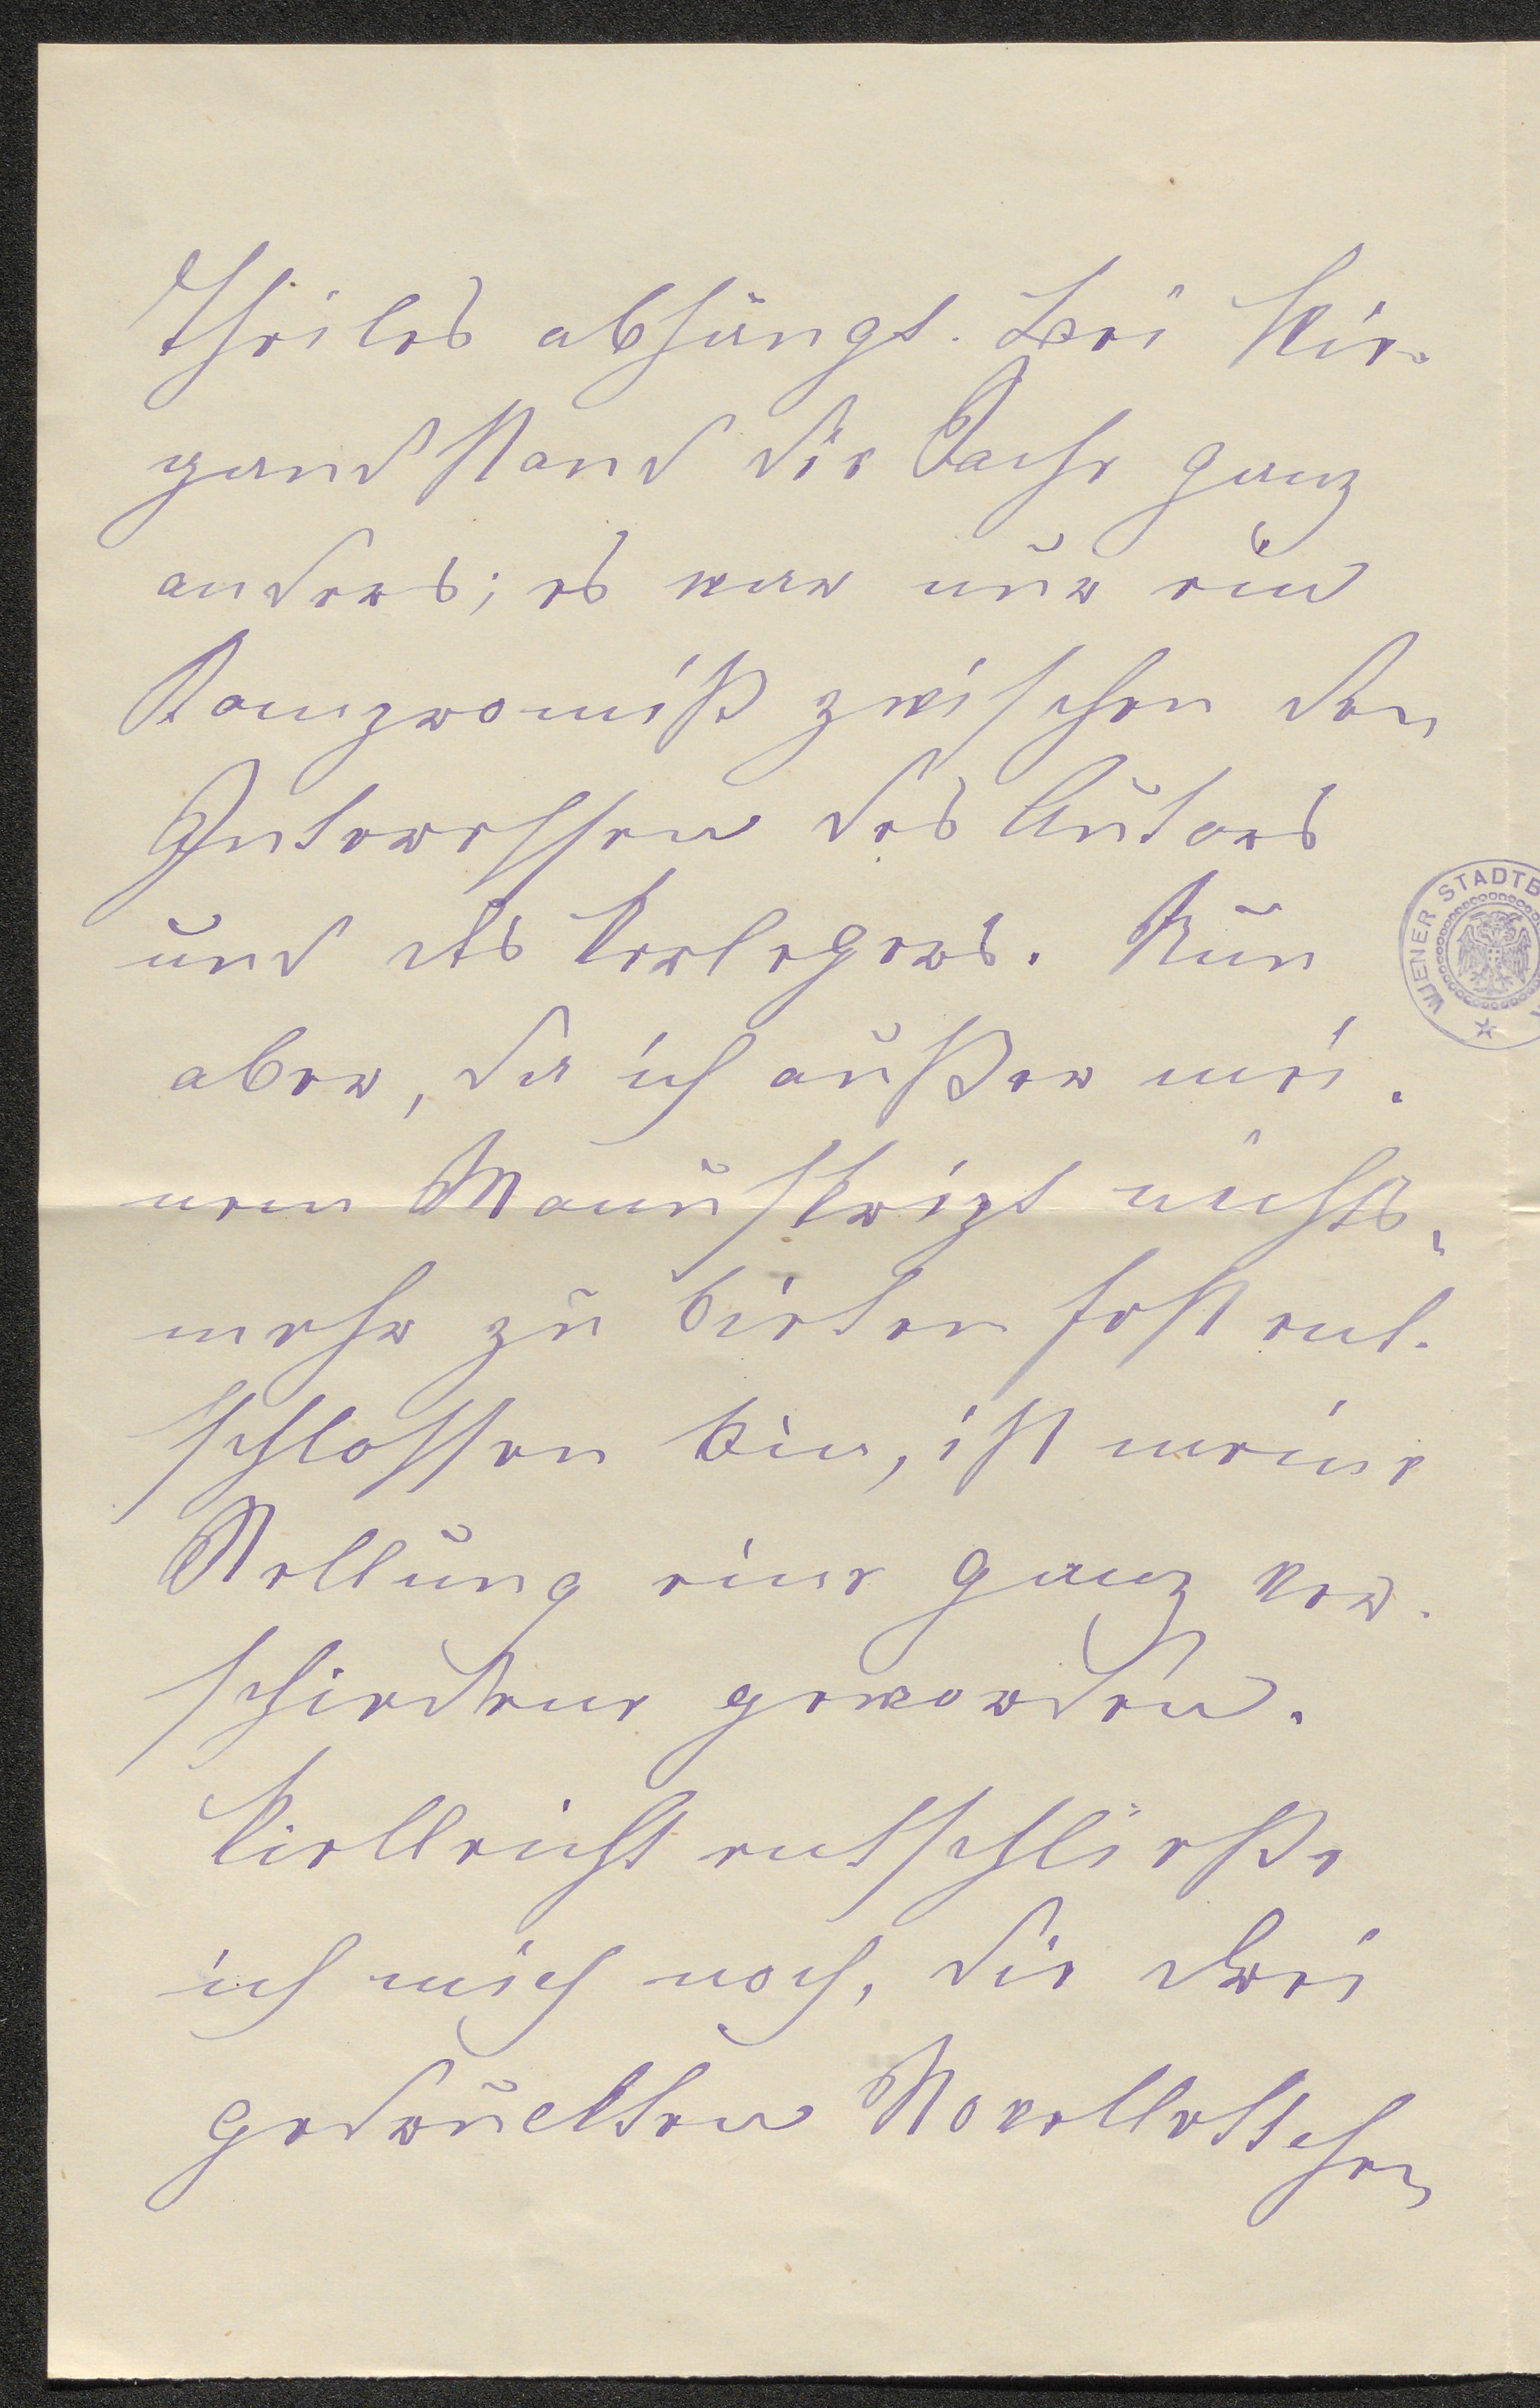 Theiles abhängt. Bei Wie-
gand stand die Sache ganz
anders; es war nur ein
Kompromiß zwischen den
Interessen des Autors
und des Verlegers. Nun
aber, da ich außer mei-
nem Manuskript nichts
mehr zu bieten fest ent-
schlossen bin, ist meine
Stellung eine ganz ver-
schiedene geworden.
Vielleicht entschließe
ich mich noch, die drei
gedruckten Novellettchen
WIENER STADTB